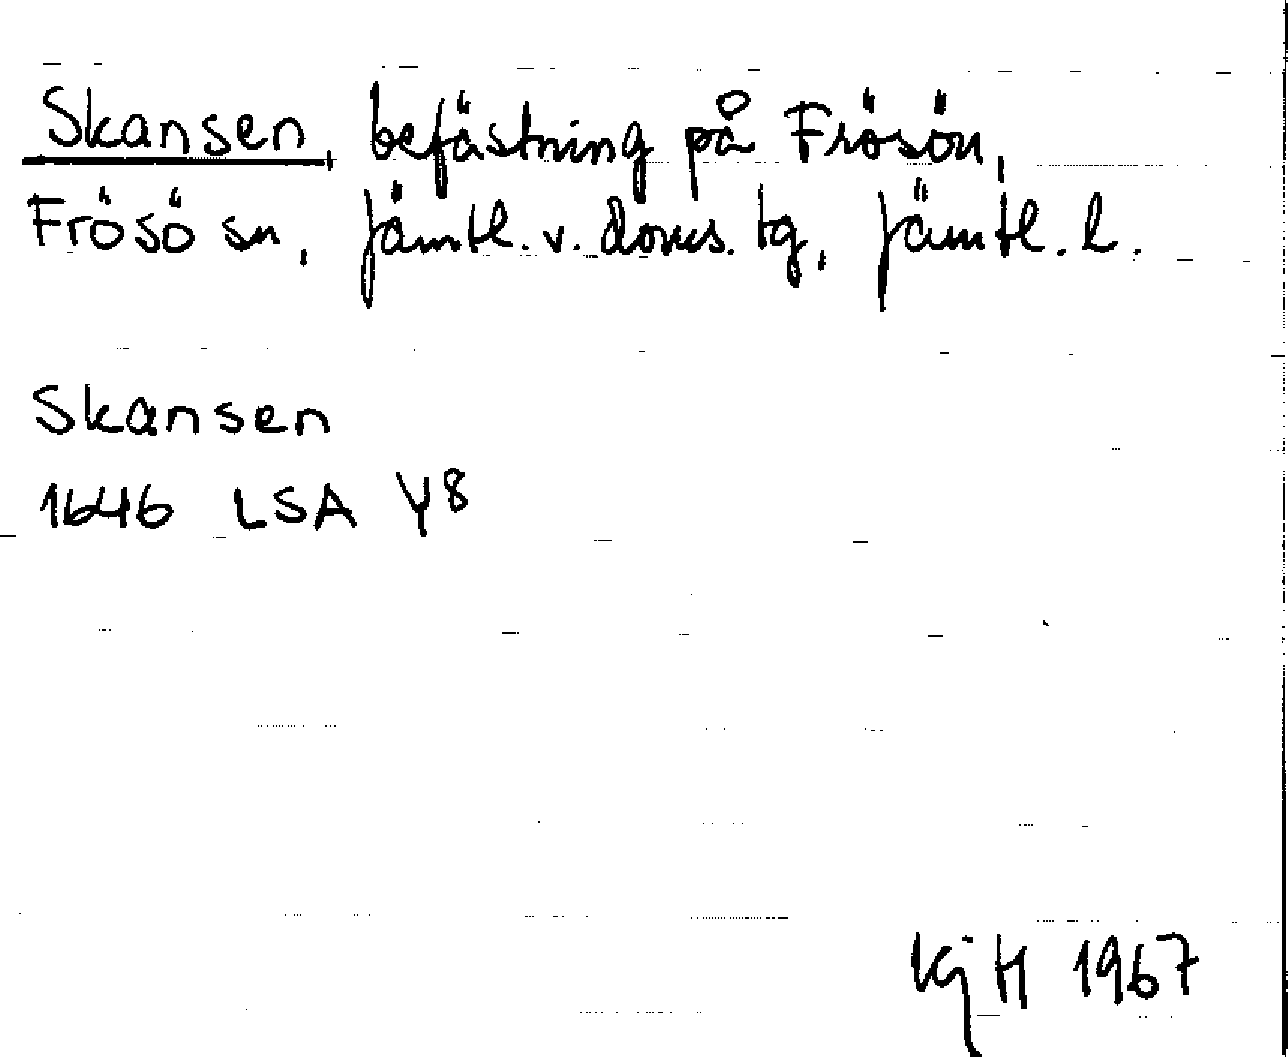 Skansen, befästning på Frösön,
Frösö sn, Jämtl. v. doms. tg, Jämtl. l.
Skansen
1646 LSA Y8
KjH 1967